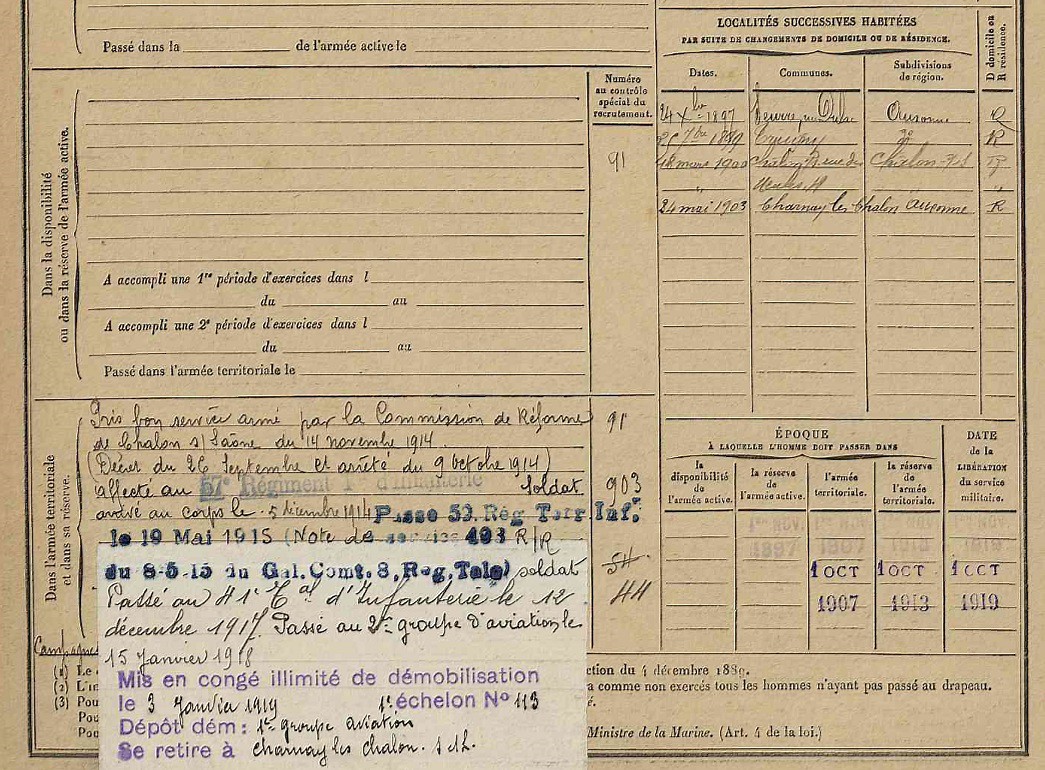 Passé dans la de l'armée active le
Dans la disponibilité
ou dans la réserve de l'armée active.
Numéro
au contrôle
spécial du
recrutement.
91
A accompli une 1re période d'exercices dans l
du au
A accompli une 2e période d'exercices dans l
du au
Passé dans l'armée territoriale le
LOCALITÉS SUCCESSIVES HABITÉES
PAR SUITE DE CHANGEMENTS DE DOMICILE OU DE RÉSIDENCE.
D domicile ou
R résidence.
Dates. Communes. Subdivisions
de région.
24 Xbre 1897 Auxonne R
7bre 1899 do R
mars 1900 Chalon Chalon-s/S
24 mai 1903 Charnay les Chalon Auxonne R
Dans l'armée territoriale
et dans sa réserve.
Pris bon service armé par la Commission de Réforme 91
de Chalon s/ Saône du 14 novembre 1914.
(Décret du 26 Septembre et arrêté du 9 octobre 1914)
affecté au 57e Régiment Tal d'Infanterie soldat 903
arrivé au corps le 5 décembre 1914 Passe 59. Rég Terr Inf.
le 19 Mai 1915 (Note de service 493 R/R
du 8-5-15 du Gal. Comt. 8. Reg. soldat 54
Passé au 41e Tal d'Infanterie le 12 44
décembre 1917. Passé au 2e groupe d'aviation le
15 Janvier 1918
Mis en congé illimité de démobilisation
le 3 Janvier 1919 1r échelon No 113
Dépôt dém: 1er groupe aviation
Se retire à Charnay les Chalon. S &L.
ÉPOQUE
À LAQUELLE L'HOMME DOIT PASSER DANS
la
disponibilité
de
l'armée active.
la réserve
de
l'armée active.
l'armée
territoriale.
la réserve
de
l'armée
territoriale.
DATE
de la
LIBÉRATION
du service
militaire.
1er NOV. 1er NOV. 1er NOV. 1er NOV.
1897 1907 1913 1919
1 OCT 1 OCT 1 OCT
1907 1913 1919
Campagnes
(1) Le ction du 4 décembre 1889.
(2) L'in a comme non exercés tous les hommes n'ayant pas passé au drapeau.
(3) Pou é.
Pou
Pou Ministre de la Marine. (Art. 4 de la loi.)